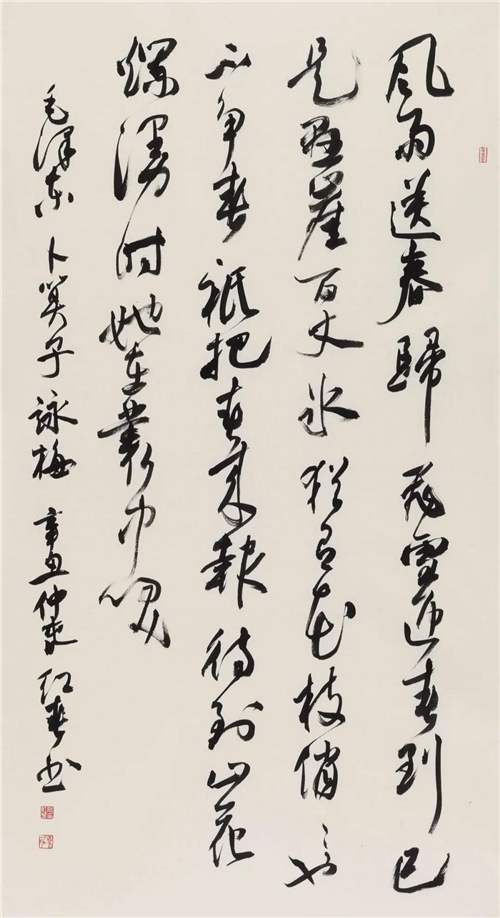 風雨送春歸飛雪迎春到已
是懸崖百丈冰猶有花枝俏〻也
不爭春祇把春來報待到山花
爛漫時她在叢中咲
毛澤东卜算子詠梅 辛丑仲夏 红春书